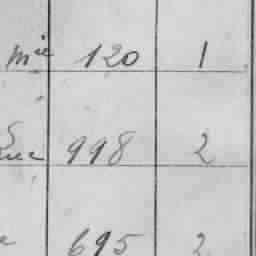 mie 120 1
998 2
695 2